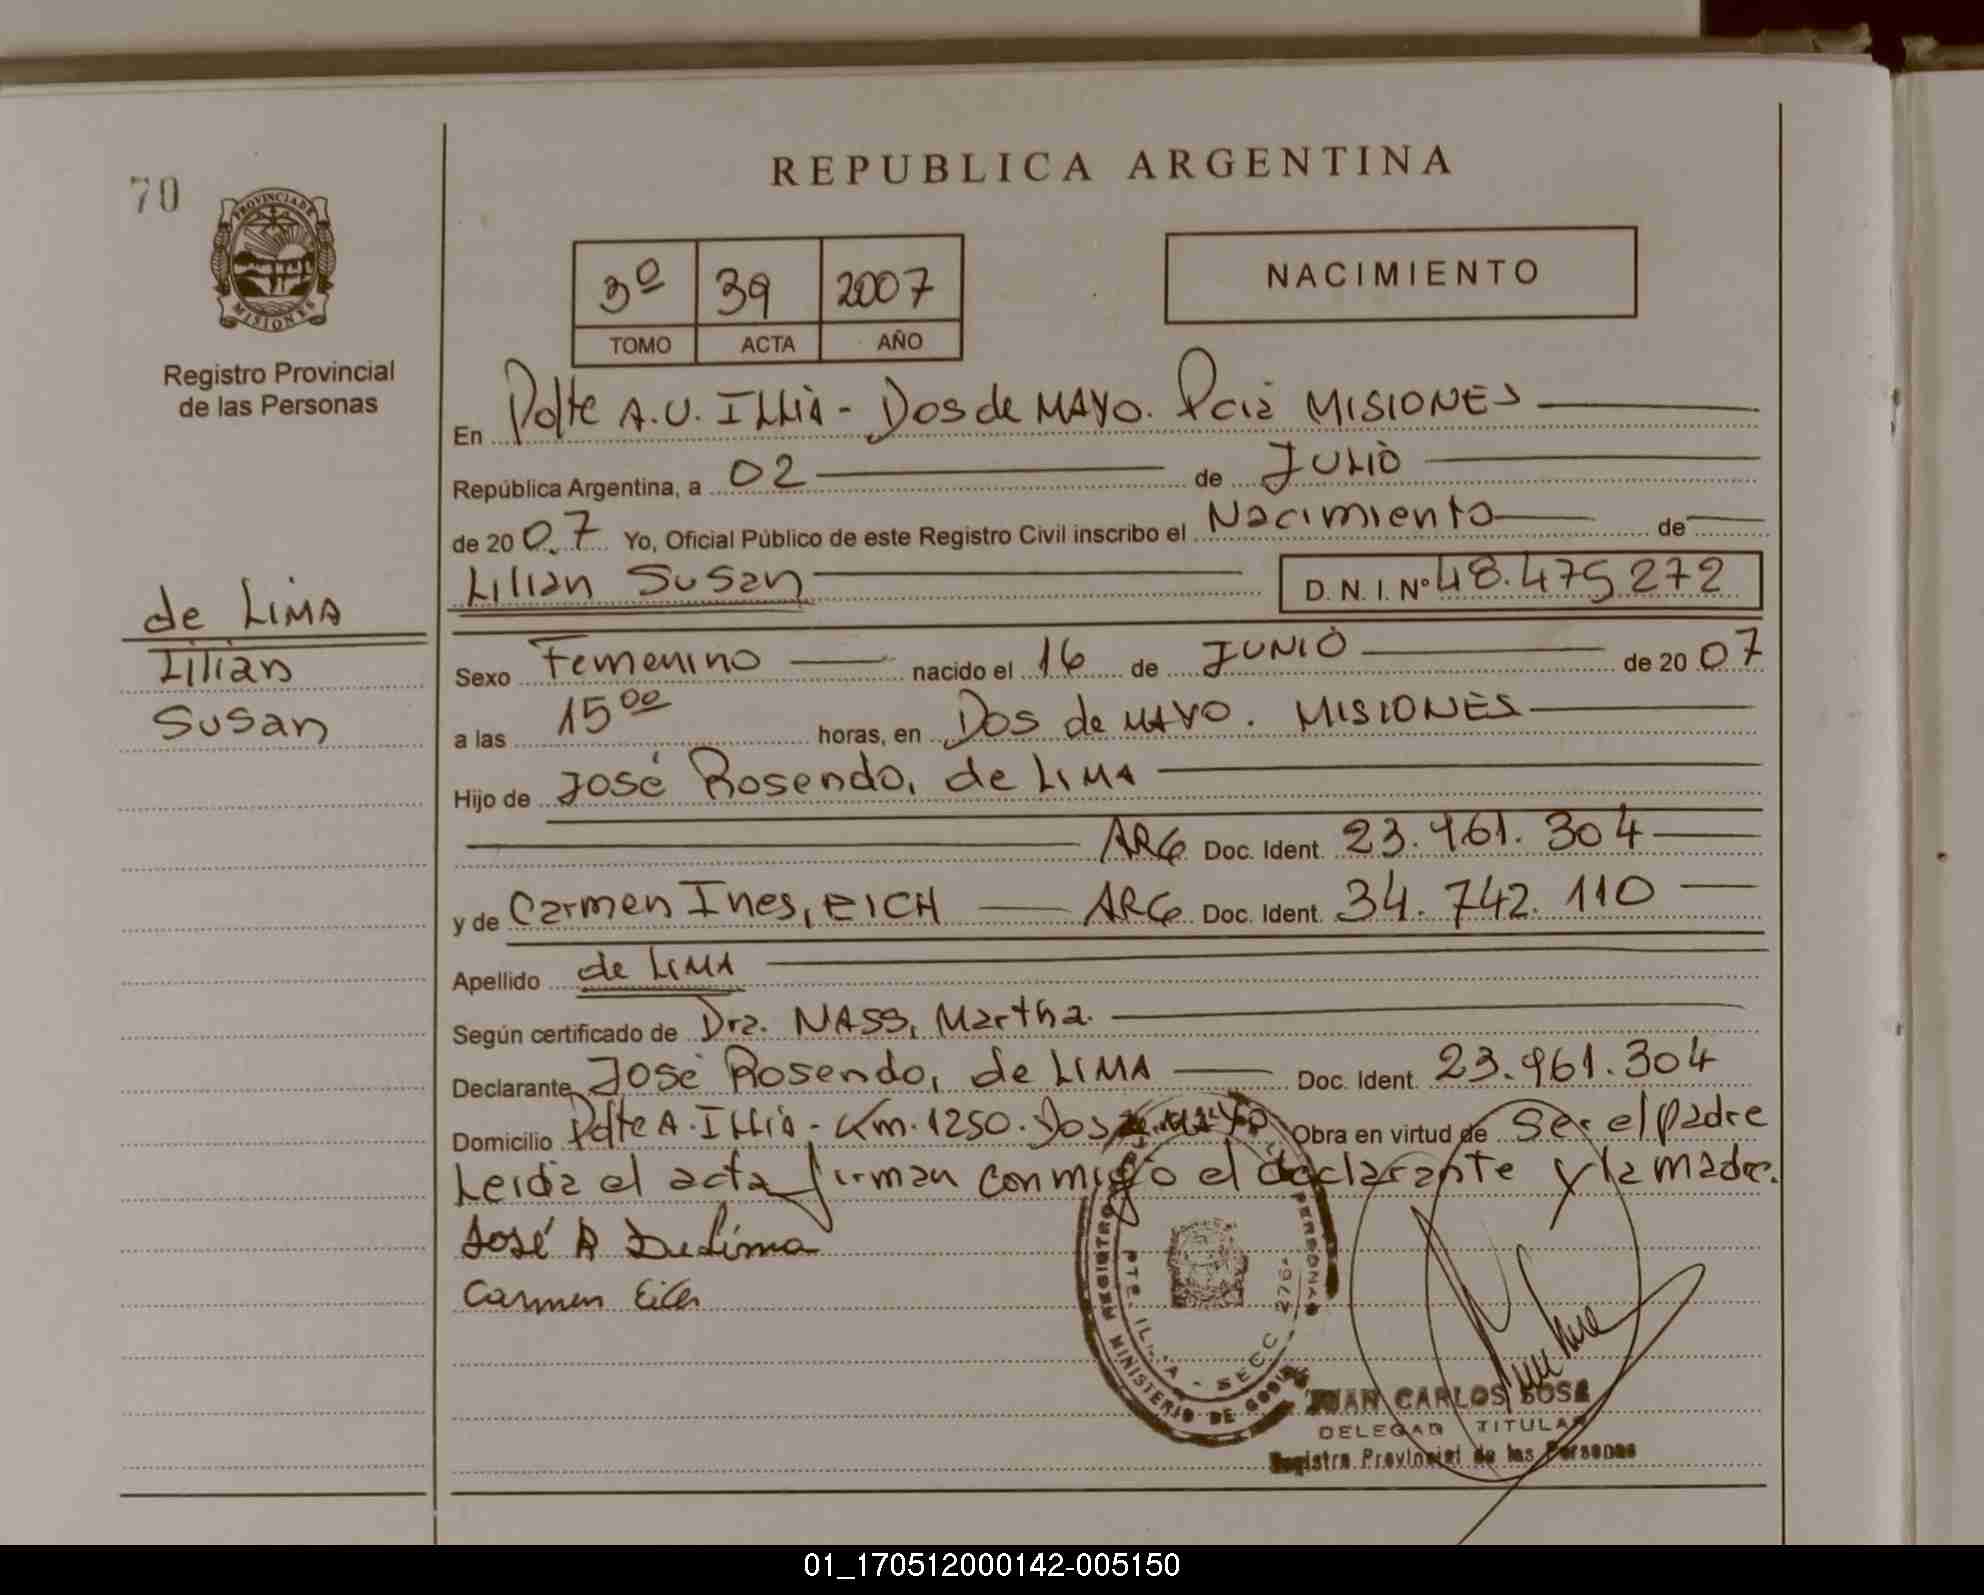 70
PROVINCIA DE
MISIONES
Registro Provincial
de las Personas
de LIMA
Lilian
Susan
REPUBLICA ARGENTINA
3º 39 2007
TOMO ACTA AÑO
NACIMIENTO
En Pdte A. U. ILLIA - Dos de MAYO. Pcia MISIONES
República Argentina, a 02 de JULIO
de 2007 Yo, Oficial Público de este Registro Civil inscribo el Nacimiento de
Lilian Susan D. N. I. Nº 48.475.272
Sexo Femenino nacido el 16 de JUNIO de 2007
a las 15 00 horas, en Dos de MAYO. MISIONES
Hijo de José Rosendo, de LIMA
ARG Doc. Ident. 23.961.304
y de Carmen Ines, EICH ARG Doc. Ident. 34.742.110
Apellido de LIMA
Según certificado de Dra. NASS, Martha.
Declarante José Rosendo, de LIMA Doc. Ident. 23.961.304
Domicilio Pdte A. ILLIA - Km. 1250. Dos de MAYO Obra en virtud de Ser el padre
Leida el acta firman conmigo el declarante y la madre.
José R De Lima
Carmen Eich
REGISTRO PERSONAS
PTE. ILLIA - SECC. 276
MINISTERIO DE GOBI
JUAN CARLOS SOSA
DELEGAD TITULAR
Registro Provincial de las Personas
01_170512000142-005150